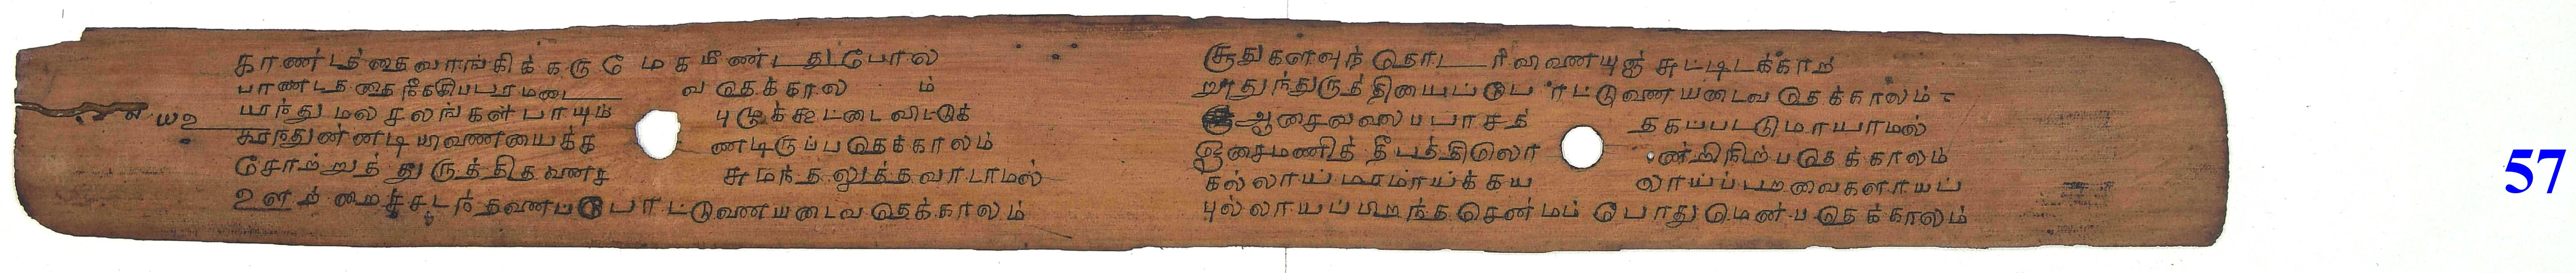 காண்டத்தைவாங்கிக்கருமேகமீண்டதுபோல
பாண்டத்தைநீக்கிபபரமடைவதெக்காலம்
யஉ
யூர்ந்துமலசலங்கள்பாயும் புழுக்கூட்டைவிட்டுக்
கூர்ந்துன்னடியிணையைக்கண்டிருப்பதெக்காலம்
சோற்றுத்துருத்திதனைச்சுமந்தலுத்துவாடாமல்
உளற்றைச்சடந்தனைப்போட்டுனையடைவதெக்காலம்
சூதுகளவுந்தொடர்வினையுஞ்சுட்டிடக்காற்
றூதுந்துருத்தியைப்போட்டுனையடைவதெக்காலம்
ஆசைவலைபபாசத்தகப்பட்டுமாயாமல்
ஓசைமணித்தீபத்திலொன்றிநிற்பதெக்காலம்
கல்லாய்மரமாய்க்கயலாய்ப்பறவைகளாய்ப்
புல்லாய்ப்பிறந்தசென்மம்போதுமென்பதெக்காலம்
57